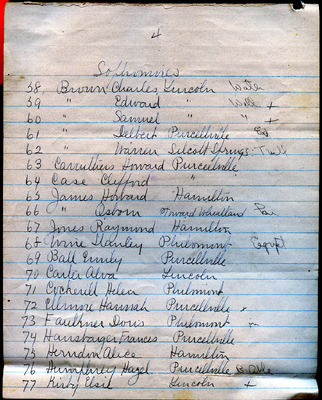 4
Sophmores
58, Brown Charles Lincoln Water
59 " Edward " Well +
60 " Samuel " " +
61 " Delbert Purcellville
62 " Warren Silcott Springs
63 Carruthers Howard Purcellville
64 Case Clifford "
65 James Howard Hamilton
66 " Osborn Wheatland
67 Jones Raymond Hamilton
68 Stanley Philomont Egypt
69 Ball Emily Purcellville
70 Carter Alva Lincoln
71 Cockerill Helen Philmont
72 Ellmore Hannah Purcellville
73 Faulkner Doris Philmont
74 Frances Purcellville
75 Herndon Alice Hamilton
76 Humphrey Hazel Purcellville
77 Kirby Elsie Lincoln +